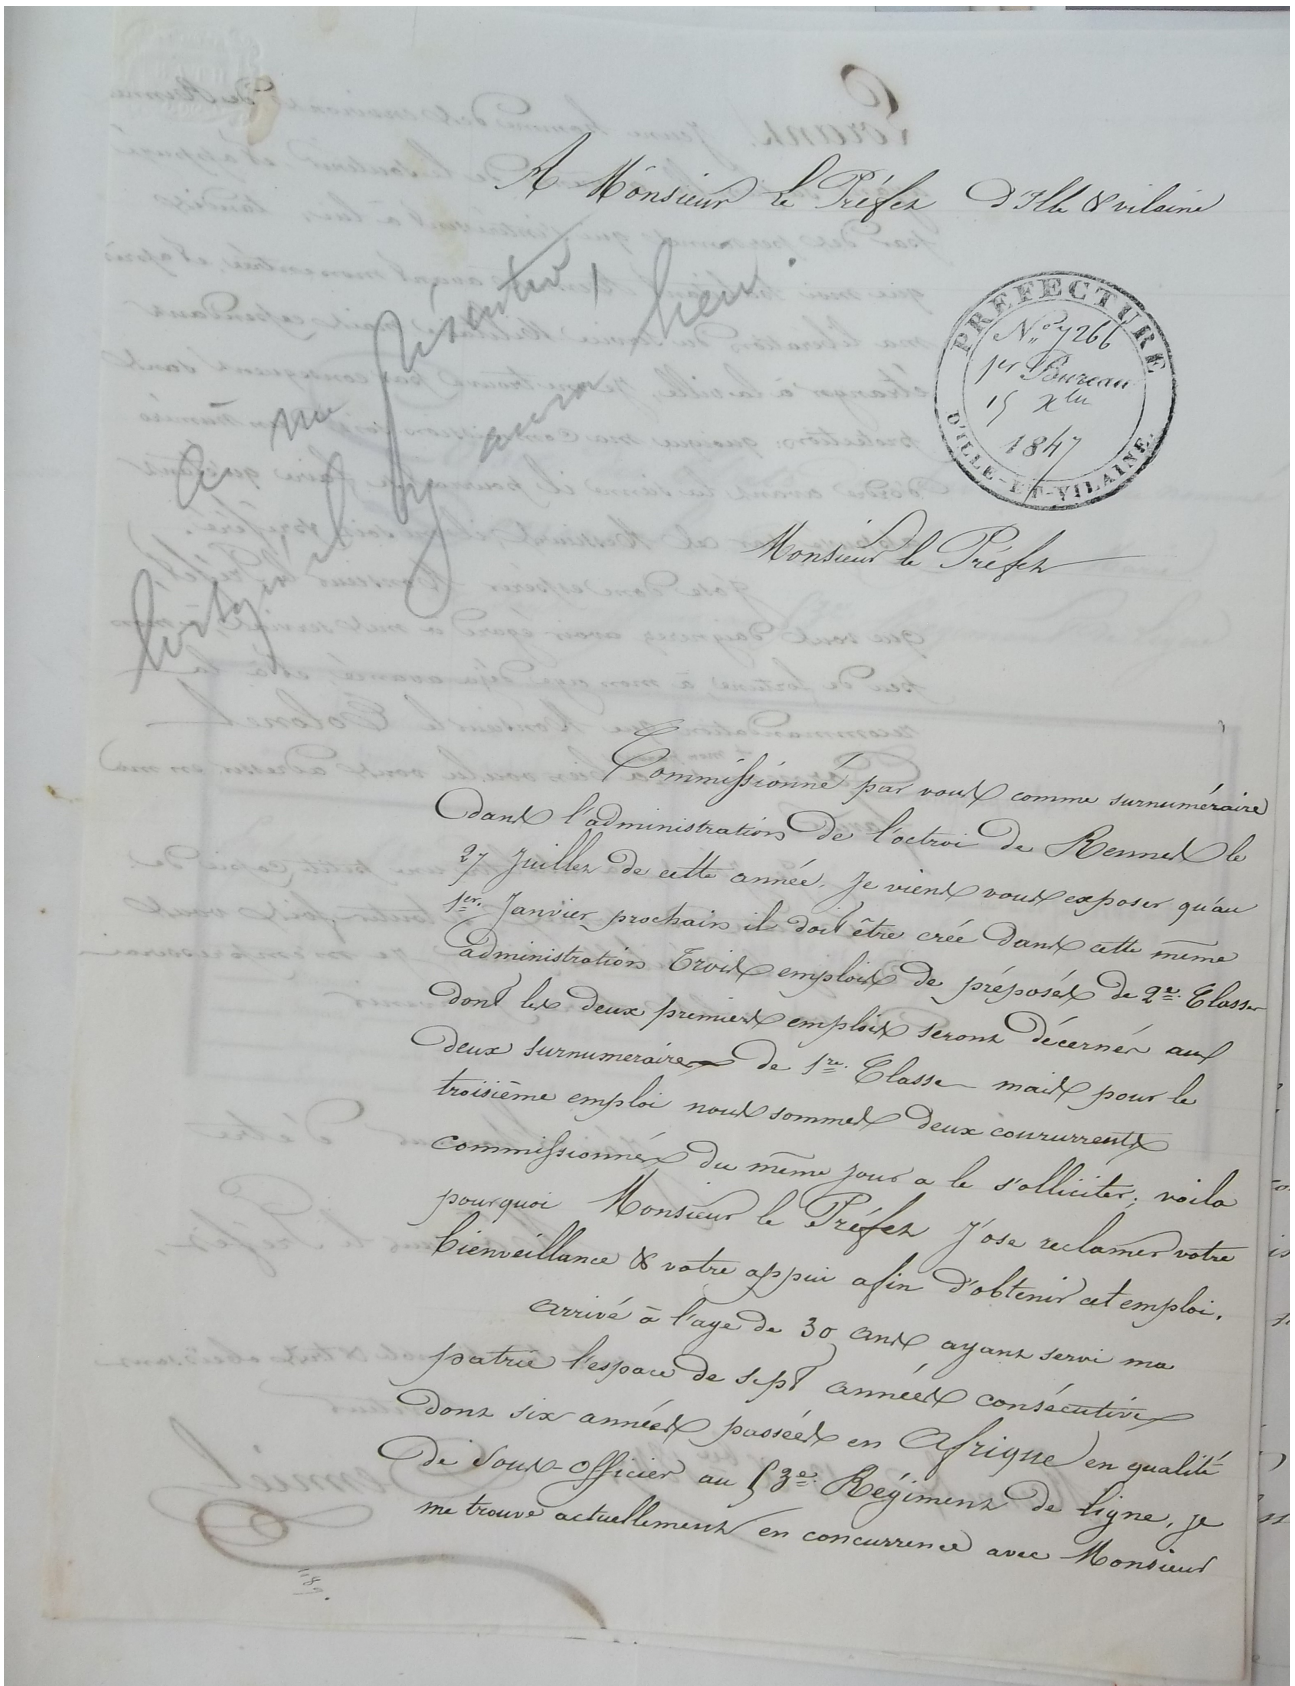 A Monsieur le Préfet D'Ille & vilaine
PREFECTURE
D'ILLE-ET-VILAINE.
No 7266
1er Bureau
15 Xbre
1847
a me présenter
lorsqu'il y aura lieu.
Monsieur le Préfet
Commissionné par vous comme surnuméraire
dans l'administration de l'octroi de Rennes le
27 Juillet de cette année. Je viens vous exposer qu'au
1er. Janvier prochain il doit être crée dans cette même
administration trois emplois de préposés de 2e. Classe
dont les deux premiers emplois seront décernés aux
deux surnumeraires de 1re. Classe mais pour le
troisième emploi nous sommes deux courrurrents
commissionnés du même jour a le s'olliciter; voila
pourquoi Monsieur le Préfet J'ose reclamer votre
bienveillance & votre appui afin d'obtenir cet emploi.
arrivé à l'age de 30 ans ayant servi ma
patrie l'espace de sept années consécutives
dont six années passées en Afrique en qualité
de Sous-officier au 53e. Régiment de ligne, je
me trouve actuellement en concurrence avec Monsieur